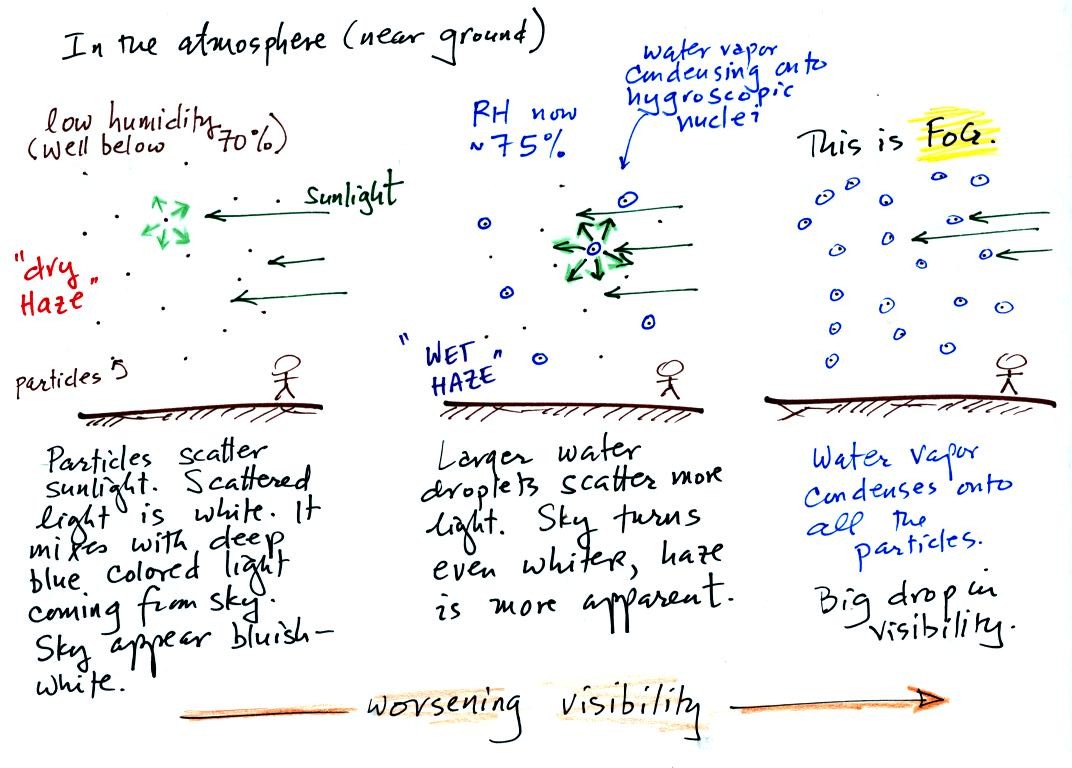 In the atmosphere (near ground)
low humidity
(well below 70%)
sunlight
"dry
Haze"
particles
Particles scatter
sunlight. Scattered
light is white. It
mixes with deep
blue colored light
coming from sky.
Sky appear bluish-
white.
RH now
~75%
water vapor
condensing onto
hygroscopic
nuclei
"WET
HAZE"
Larger water
droplets scatter more
light. Sky turns
even whiter, haze
is more apparent.
This is FOG.
Water vapor
condenses onto
all the
particles.
Big drop in
visibility.
worsening visibility